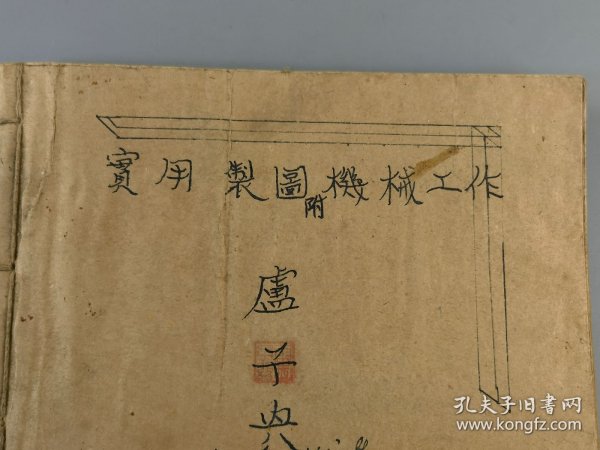 實用製圖附機械工作
盧子典
孔夫子旧书网
www.kongfz.com